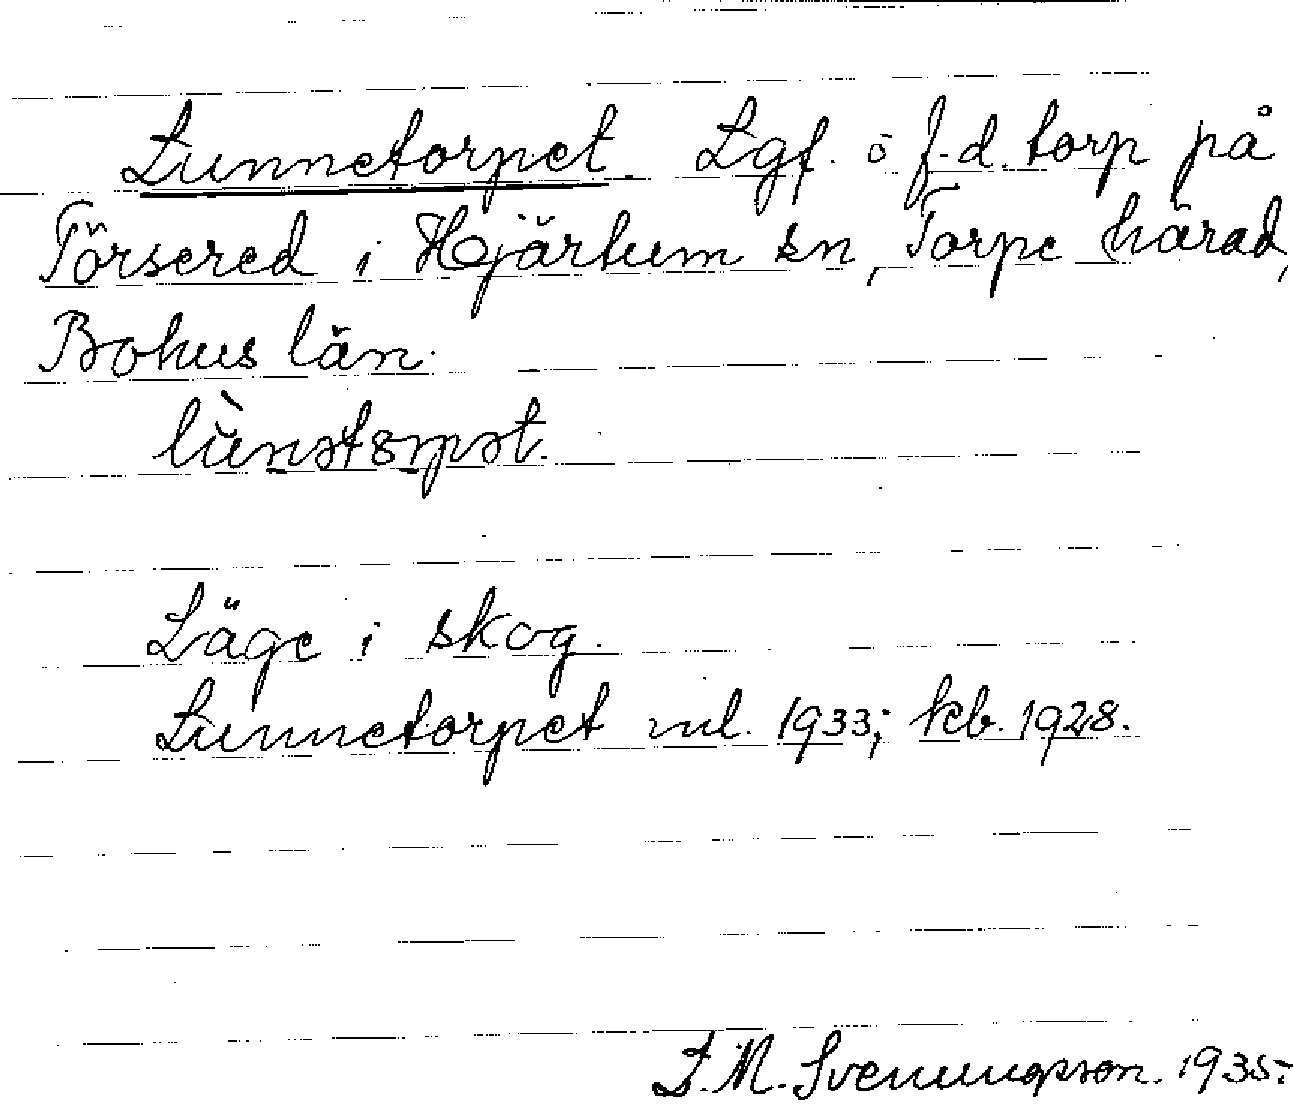 Lunnetorpet Lgf. ö f.d. torp på
Törsered i Hjärtum sn, Torpe härad,
Bohus län.
lùnətorpət.
Läge i skog.
Lunnetorpet ml. 1933; kb. 1928.
L.M. Svenungsson. 1935.